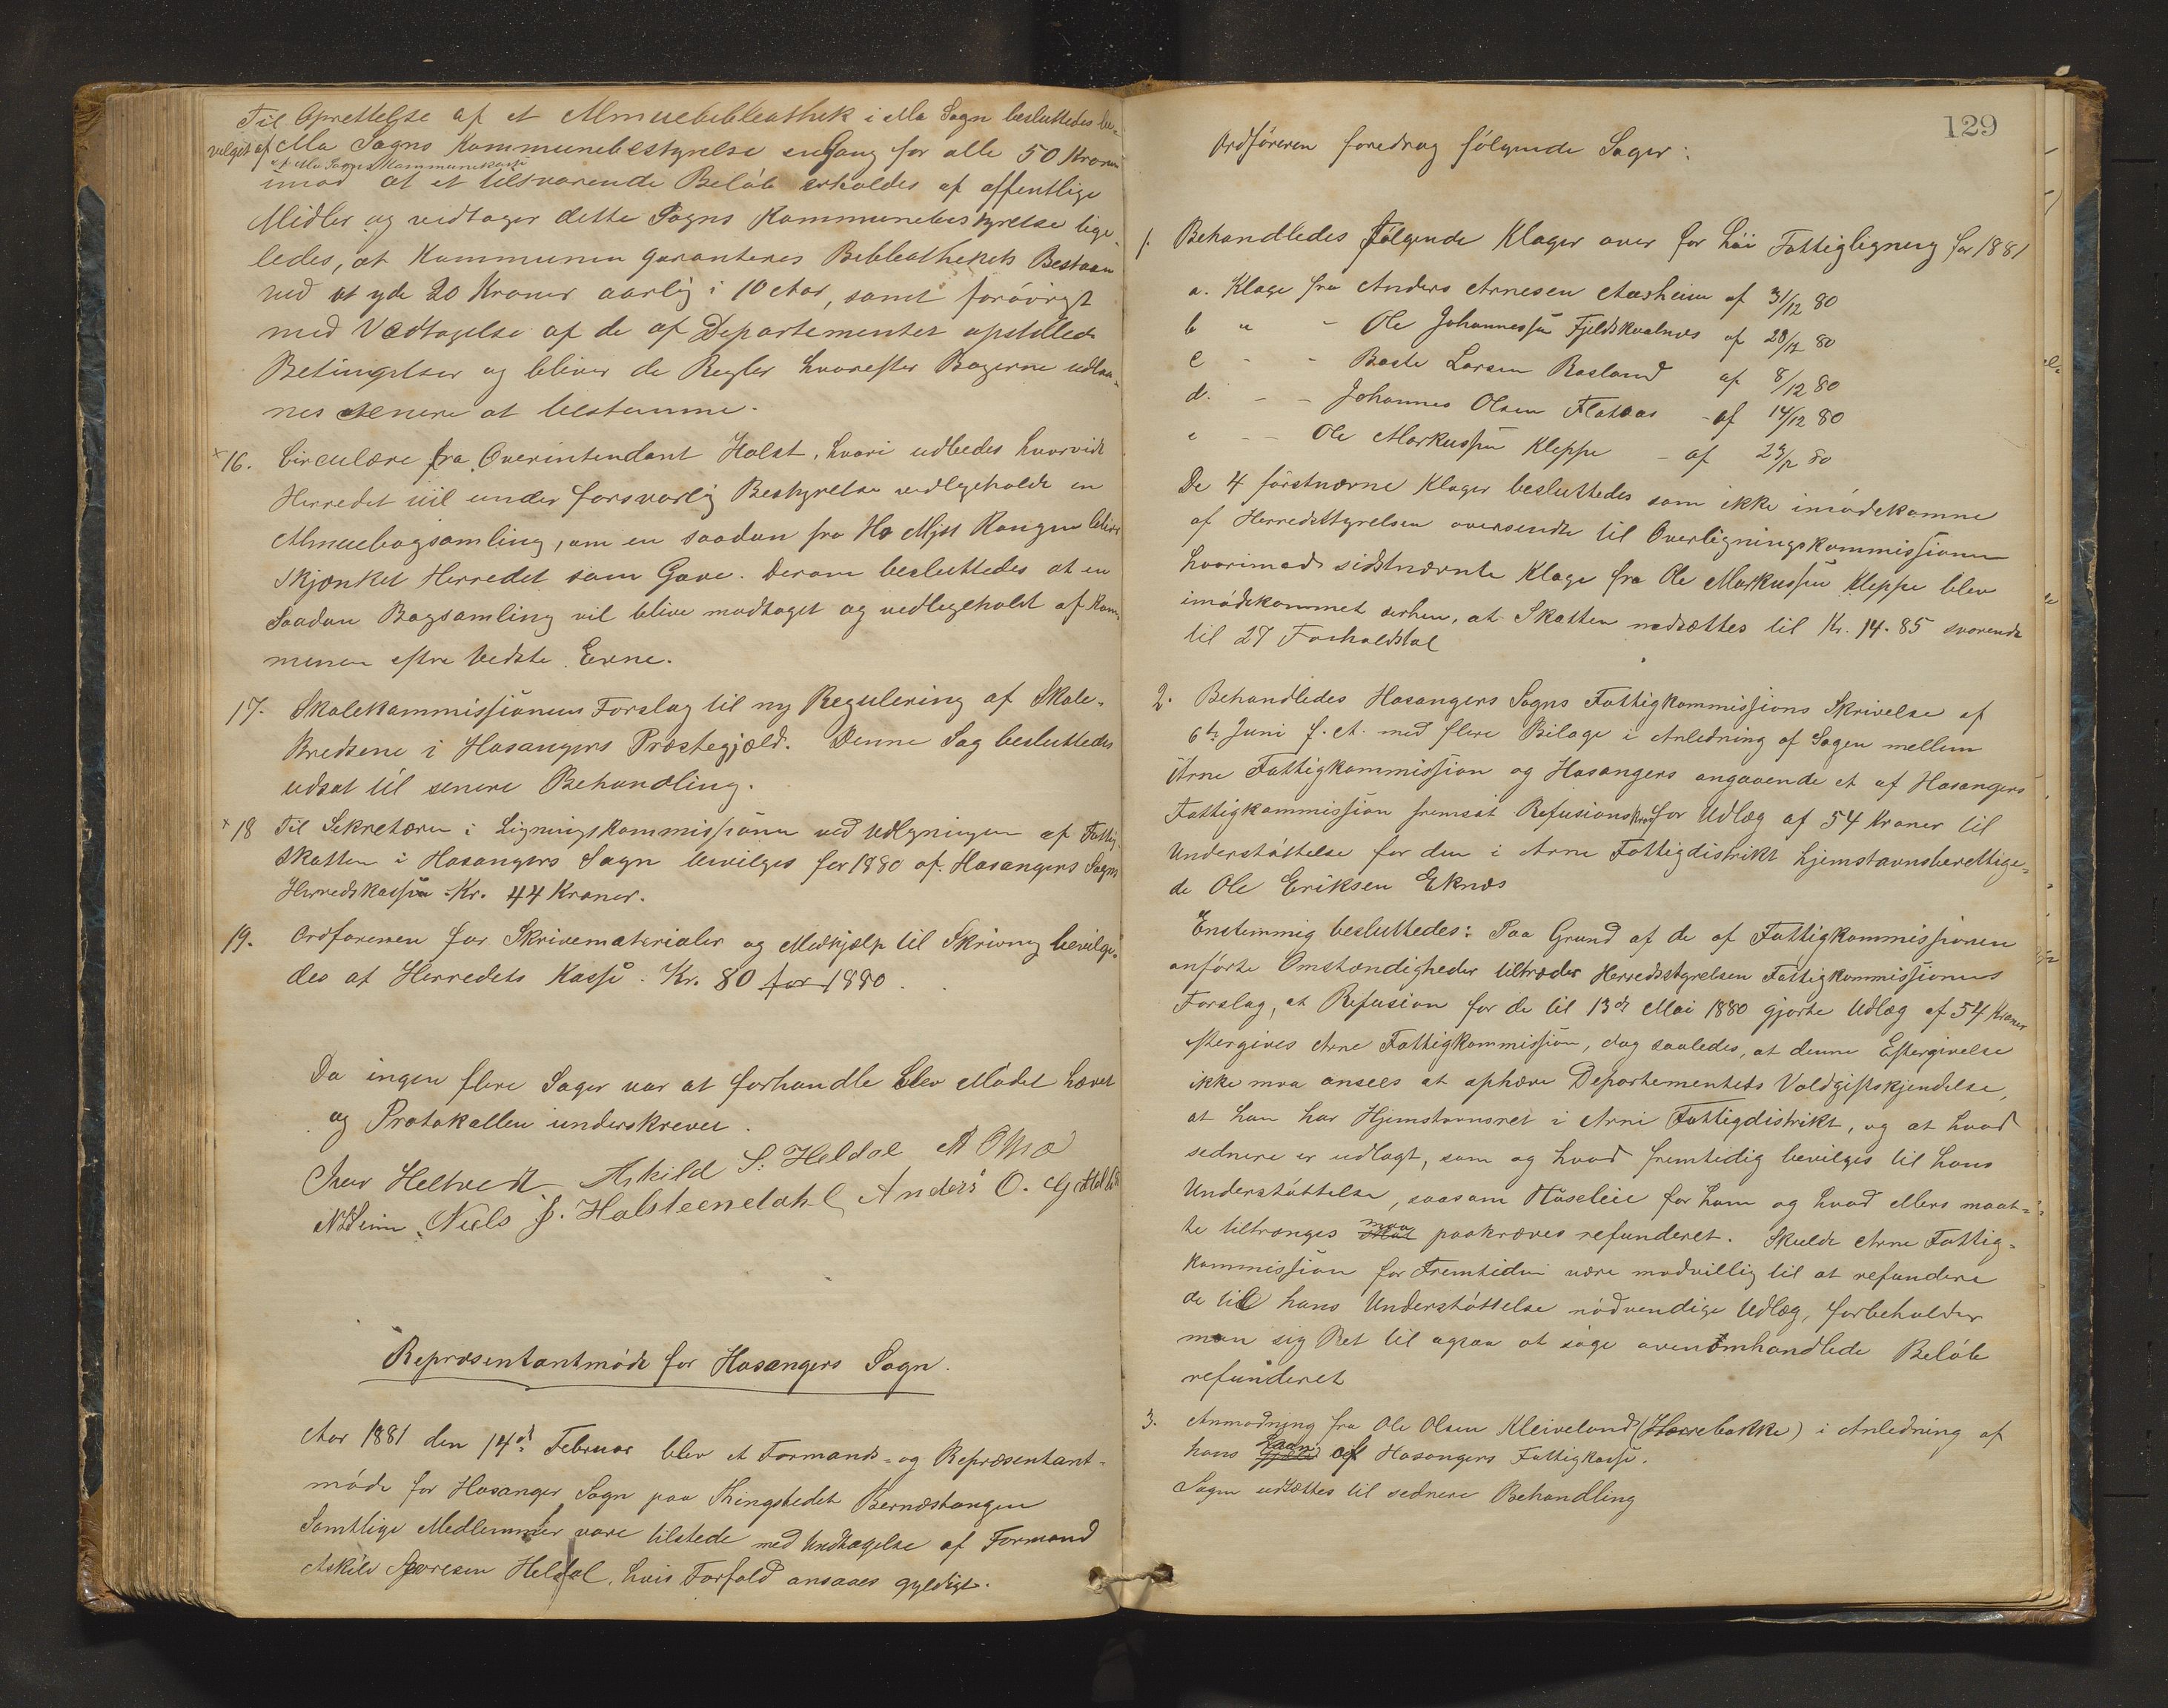 Til Oprettelse af et Almuebibleothek i Mo Sogn besluttedes be-
vilget af Mo Sogns Kommunebestyrelse engang for alle 50 Kroner
af Mo Sogns Kommunekasse
imod at et tilsvarende Beløb erholdes af offentlige
Midler og vedtager dette Sogns Kommunebestyrelse lige-
ledes, at Kommunen garanteres Bibleothekets Bestaaen
ved at yde 20 Kroner aarlig i 10 Aar, samt forøvrigt
med Vedtagelse af de af Departementet opstillede
Betingelser og bliver de Regler hvorefter Bøgerne udlaa-
nes senere at bestemme.
x16. Circulære fra Overintendant Holst, hvori udbedes hvorvidt
Herredet vil under forsvarlig Bestyrelse vedlegeholde en
Almuebogsamling, om en saadan fra Hs Mjst Kongen bliver
skjænket Herredet som Gave. Derom besluttedes at en
Saadan Bogsamling vil blive modtaget og vedlegeholdt af Kom-
munen efter bedste Evne.
17. Skolekommissionens Forslag til ny Regulering af Skole-
Kredsene i Hosangers Præstegjæld. Denne Sag besluttedes
udsat til senere Behandling.
x18 Til Sekretæren i Ligningskommissionen ved Udligningen af Fattig-
skatten i Hosangers Sogn bevilges for 1880 af Hosangers Sogns
Herredskasse Kr. 44 Kroner.
19. Ordføreren for Skrivematerialer og Medhjælp til Skrivning bevilge-
des af Herredets Kasse. Kr. 80 for 1880.
Da ingen flere Sager var at forhandle blev Mødet hævet
og Protokollen underskreven.
Iver Heltvedt Askild S. Heldal A O Mo
Niels J. Halsteendahl Anders O.
Repræsentantmøde for Hosangers Sogn.
Aar 1881 den 14de Februar blev et Formands- og Repræsentant-
møde for Hosanger Sogn paa Thingstedet Bernæstangen
Samtlige Medlemmer vare tilstede med Undtagelse af Formand
Askild Heldal, hvis Forfald ansaaes gyldigt.
129
Ordføreren foredrog følgende Sager:
1. Behandledes følgende Klager over for høi Fattigligning for 1881
a. Klage fra Anders Arnesen Aasheim af 31/12 80
b " - Ole Johannessen Fjeldskvalnes af 28/12 80
c - - Baste Larsen Rosland af 8/12 80
d. - - Johannes Olsen Flataas - af 14/12 80
e - - Ole Markussen Kleppe - af 29/12 80
De 4 førstnævne Klager besluttedes som ikke imødekomne
af Herredsstyrelsen oversendte til Overligningskommissionen
hvorimod sidstnævnte Klage fra Ole Markussen Kleppe blev
imødekommet derhen, at Skatten nedsættes til Kr. 14.85 svarende
til 27 Forholdstal
2. Behandledes Hosangers Sogns Fattigkommissions Skrivelse af
6te Juni f. A. med flere Bilage i Anledning af Sagen mellem
Arne Fattigkommission og Hosangers angaaende et af Hosangers
Fattigkommission fremsat Refusionskrav for Udlæg af 54 Kroner til
Understøttelse for den i Arne Fattigdistrikt hjemstavnsberettige-
de Ole Eriksen Eknes
Enstemmig besluttedes: Paa Grund af de af Fattigkommissionen
anførte Omstændigheder tiltræder Herredsstyrelsen Fattigkommissionens
Forslag, at Refusion for de til 13de Mai 1880 gjorte Udlæg af 54 Kroner
eftergives Arne Fattigkommission, dog saaledes, at denne Eftergivelse
ikke maa ansees at ophæve Departementets Voldgiftskjendelse,
at han har Hjemstavnsret i Arne Fattigdistrikt, og at hvad
sednere er udlagt, som og hvad fremtidig bevilges til hans
Understøttelse, saasom Husleie for ham og hvad ellers maat-
te tiltrænges maa paakræves refunderet. Skulde Arne Fattig-
kommission for Fremtiden være modvillig til at refundere
de til hans Understøttelse nødvendige Udlæg, forbeholder
man sig Ret til ogsaa at søge ovenomhandlede Beløb
refunderet
3. Anmodning fra Ole Olsen Kleiveland (Hærrebakke) i Anledning af
hans Laan af Hosangers Fattigkasse.
Sagen udsættes til sednere Behandling